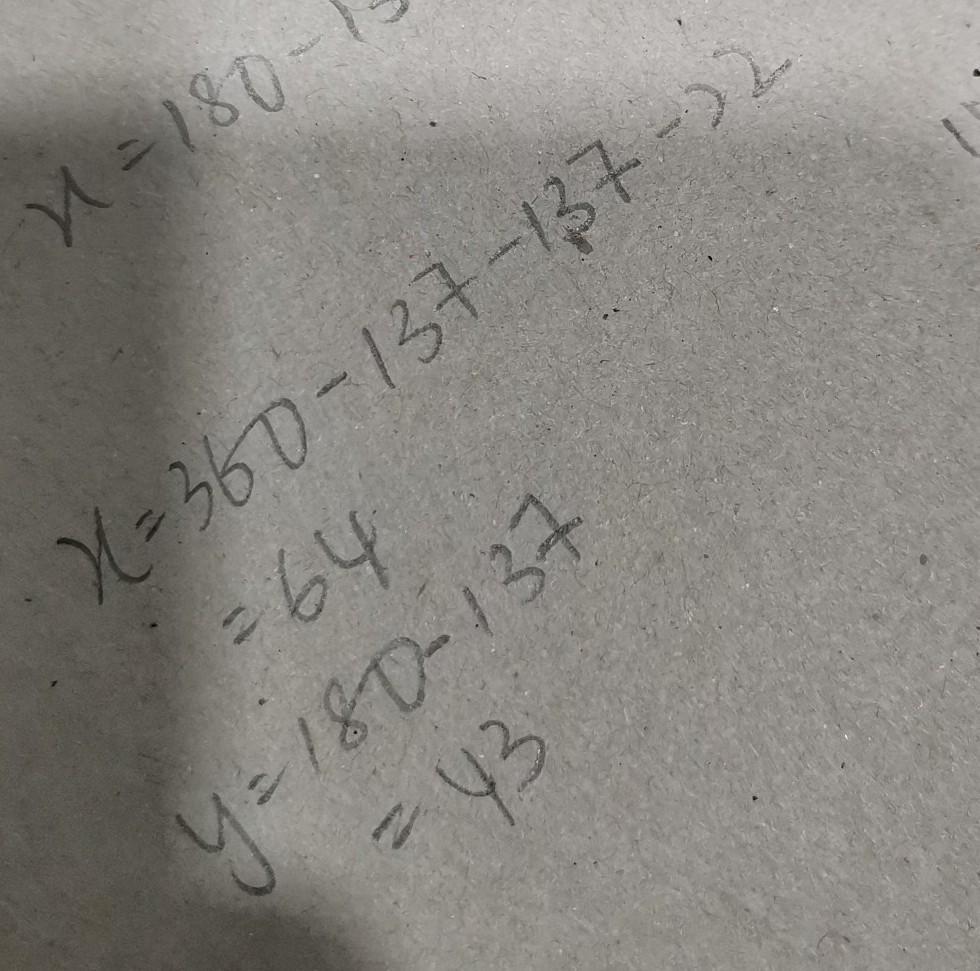 x = 180 - 13
x = 360 - 137 - 137 - 22
= 64
y = 180 - 137
= 43